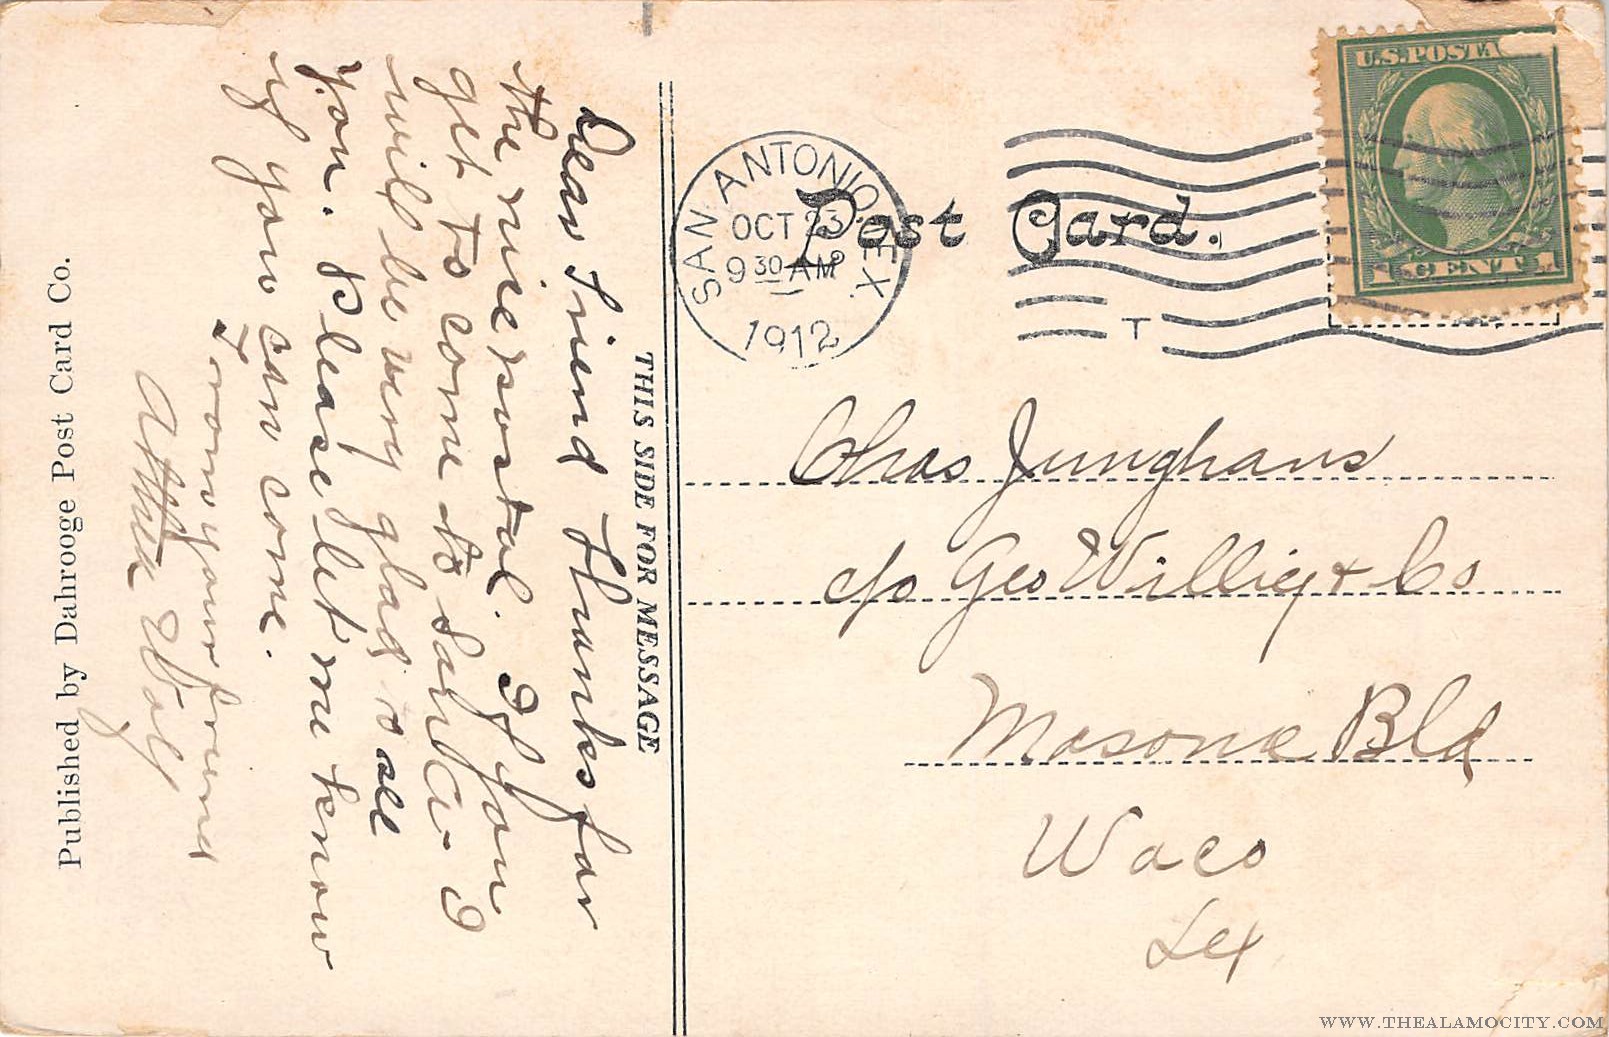 Dear Friend Thanks for
the nice postal. If you
get to come to San An I
will be very glad to see
you. Please let me know
if you can come.
From your friend
Arthur Wolf
Published by Dahrooge Post Card Co.
THIS SIDE FOR MESSAGE
Post Card.
SAN ANTONIO TEX.
OCT 23
9 30 AM
1912
T
U.S. POSTA
1 CENT 1
Chas Junghans
c/o Geo Willig & Co
Masonic Bld
Waco
Tex
WWW.THEALAMOCITY.COM